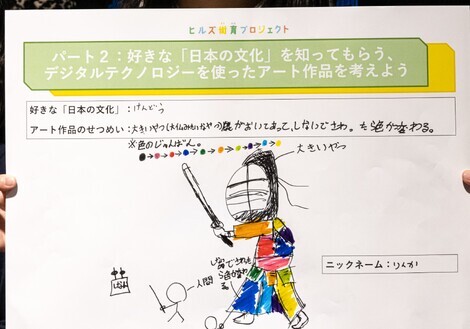 ヒルズ街育プロジェクト
パート2:好きな「日本の文化」を知ってもらう、
デジタルテクノロジーを使ったアート作品を考えよう
好きな「日本の文化」:けんどう
アート作品のせつめい:大きいやつ(大仏みたいなやつ)が
おいてあって、しないでさわ
色がかわる。
※色のじゅんばん。
大きいやつ
人間
しないでさわ
色がかわ
る。
ニックネーム:りんか